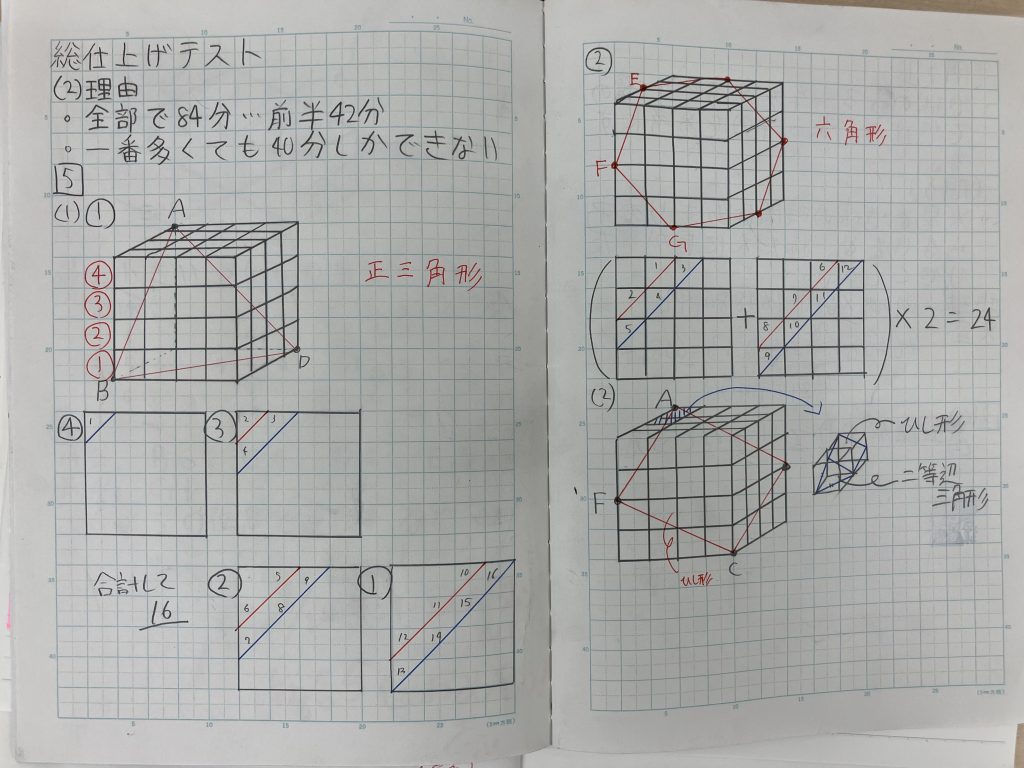 総仕上げテスト
(2)理由
。全部で84分…前半42分
。一番多くても40分しかできない
5
(1)①
A
④
③
②
①
B
D
正三角形
④
1
③
2 3
4
合計して
16
②
5 9
6 8
7
①
10 16
11 15
12 14
13
②
E
F
G
六角形
1 3
2 4
5
+
6 12
7 11
8 10
9
× 2 = 24
(3)
A
F
C
ひし形
ひし形
二等辺
三角形
No.
No.
(5mm方眼)
(5mm方眼)